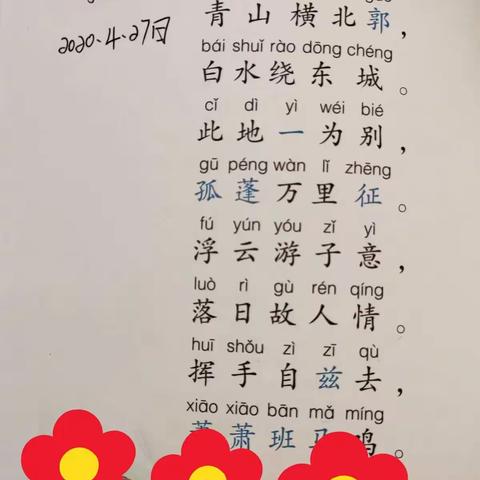 2020.4.27日
青山横北郭，
bái shuǐ rào dōng chéng
白水绕东城。
cǐ dì yì wéi bié
此地一为别，
gū péng wàn lǐ zhēng
孤蓬万里征。
fú yún yóu zǐ yì
浮云游子意，
luò rì gù rén qíng
落日故人情。
huī shǒu zì zī qù
挥手自兹去，
xiāo xiāo bān mǎ míng
萧萧班马鸣。